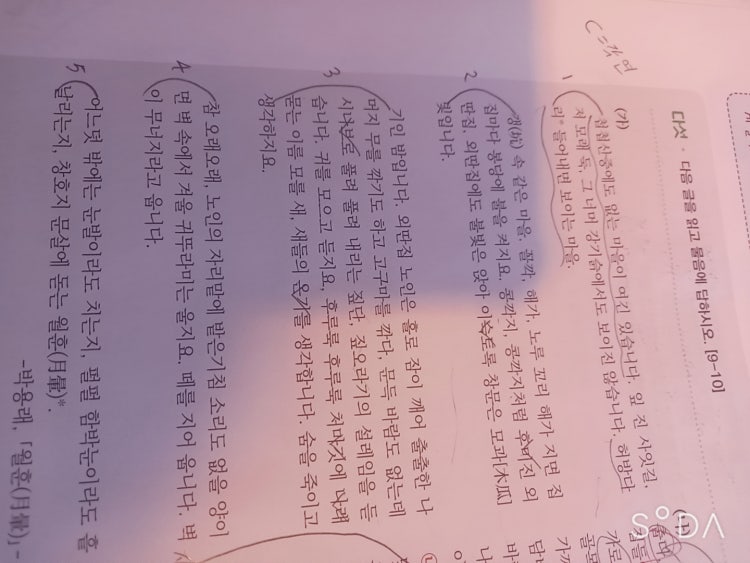 C=각 연
다섯. 다음 글을 읽고 물음에 답하시오. [9-10]
(가)
1 첩첩산중에도 없는 마을이 여긴 있습니다. 잎 진 사잇길,
저 모래 둑, 그 너머 강기슭에서도 보이진 않습니다. 허방다
리* 들어내면 보이는 마을.
2 갱(坑) 속 같은 마을. 꼴깍, 해가, 노루 꼬리 해가 지면 집
집마다 봉당에 불을 켜지요. 콩깍지, 콩깍지처럼 후미진 외
딴집, 외딴집에도 불빛은 앉아 이슥토록 창문은 모과(木瓜)
빛입니다.
3 기인 밤입니다. 외딴집 노인은 홀로 잠이 깨어 출출한 나
머지 무를 깎기도 하고 고구마를 깎다, 문득 바람도 없는데
시나브로 풀려 풀려 내리는 짚단, 짚오라기의 설레임을 듣
습니다. 귀를 모으고 듣지요. 후루룩 후루룩 처마깃에 나래
묻는 이름 모를 새, 새들의 온기를 생각합니다. 숨을 죽이고
생각하지요.
4 참 오래오래, 노인의 자리맡에 밭은기침 소리도 없을 양이
면 벽 속에서 겨울 귀뚜라미는 울지요. 떼를 지어 웁니다. 벽
이 무너지라고 웁니다.
5 어느덧 밖에는 눈발이라도 치는지, 펄펄 함박눈이라도 흩
날리는지, 창호지 문살에 돋는 월훈(月暈)*.
-박용래, 「월훈(月暈)」-
SODA